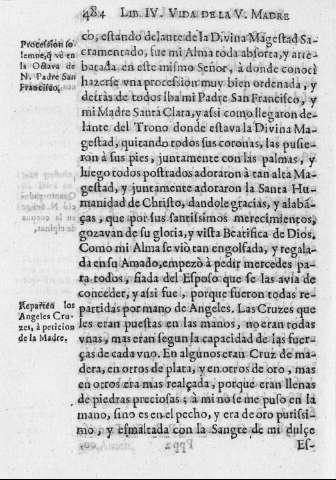 484 LIB. IV. VIDA DE LA V. MADRE
Procession so
lemne, q̃ vè en
la Octava de
N. Padre San
Francisco.
co, estando delante de la Divina Magestad Sa-
cramentado, fue mi Alma toda absorta, y arre-
batada en este mismo Señor, à donde conocí
hazerse vna procession muy bien ordenada, y
detràs de todos Iba mi Padre San Francisco, y
mi Madre Santa Clara, y assi como llegaron de-
lante del Trono donde estava la Divina Ma-
gestad, quitando todos sus coronas, las pusie-
ron à sus pies, juntamente con las palmas, y
luego todos postrados adoraron à tan alta Ma-
gestad, y juntamente adoraron la Santa Hu-
manidad de Christo, dandole gracias, y alabã-
ças, que por sus santissimos merecimientos,
gozavan de su gloria, y vista Beatifica de Dios.
Como mi Alma se viò tan engolfada, y regala-
da en su Amado, empezò à pedir mercedes pa-
ra todos, fiada del Esposo que se las avia de
conceder, y assi fue, porque fueron todas re-
Reparten los
Angeles Cru-
zes, à peticion
de la Madre.
partidas por mano de Angeles. Las Cruzes que
les eran puestas en las manos, no eran todas
vnas, mas eran segun la capacidad de las fuer-
ças de cada vno. En algunos eran Cruz de ma-
dera, en otros de plata, y en otros de oro, mas
en otros era mas realçada, porque eran llenas
de piedras preciosas; à mi no se me puso en la
mano, sino es en el pecho, y era de oro purissi-
mo, y esmaltada con la Sangre de mi dulçe
Es-